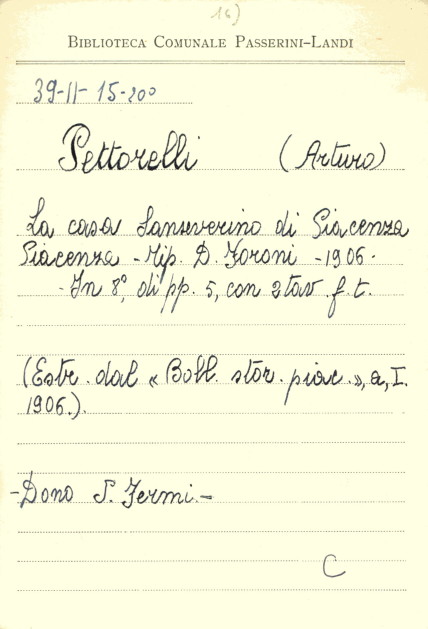 16)
BIBLIOTECA COMUNALE PASSERINI-LANDI
39-II-15-200
Pettorelli (Arturo)
La casa Sanseverino di Piacenza
Piacenza - Tip. D. Foroni - 1906.
- In 8°, di pp. 5, con 2 tav. f. t.
(Estr. dal « Boll. stor. piac. », a, I.
1906.).
- Dono S. Fermi. -
C